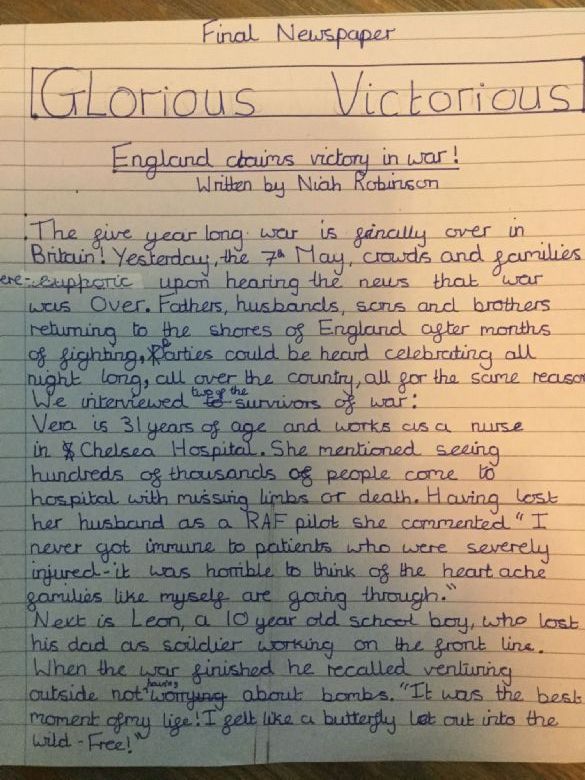 Final Newspaper
GLorious Victorious
England claims victory in war!
Written by Niah Robinson
The five year long war is finally over in
Britain! Yesterday, the 7th May, crowds and families
ere euphoric upon hearing the news that war
was Over. Fathers, husbands, sons and brothers
returning to the shores of England after months
of fighting, Parties could be heard celebrating all
night long, all over the country, all for the same reason
We interviewed two of the survivors of war:
Vera is 31 years of age and works as a nurse
in Chelsea Hospital. She mentioned seeing
hundreds of thousands of people come to
hospital with missing limbs or death. Having lost
her husband as a RAF pilot she commented "I
never got immune to patients who were severely
injured - it was horrible to think of the heart ache
families like myself are going through."
Next is Leon, a 10 year old school boy, who lost
his dad as soildier working on the front line.
When the war finished he recalled venturing
outside not having worrying about bombs. "It was the best
moment of my life! I felt like a butterfly let out into the
wild - Free!"